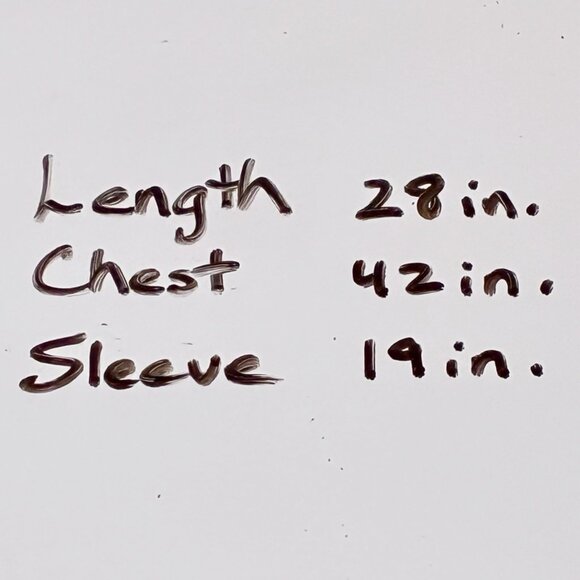 Length 28 in.
Chest 42 in.
Sleeve 19 in.